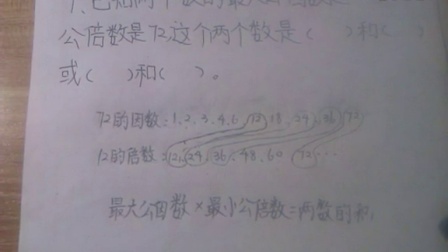 1、已知两个数的最大公因数是
公倍数是72这个两个数是（ ）和（ ）
或（ ）和（ ）。
72的因数：1、2、3、4、6、12、18、24、36、72
12的倍数：12、24、36、48、60、72…
最大公因数×最小公倍数=两数的积